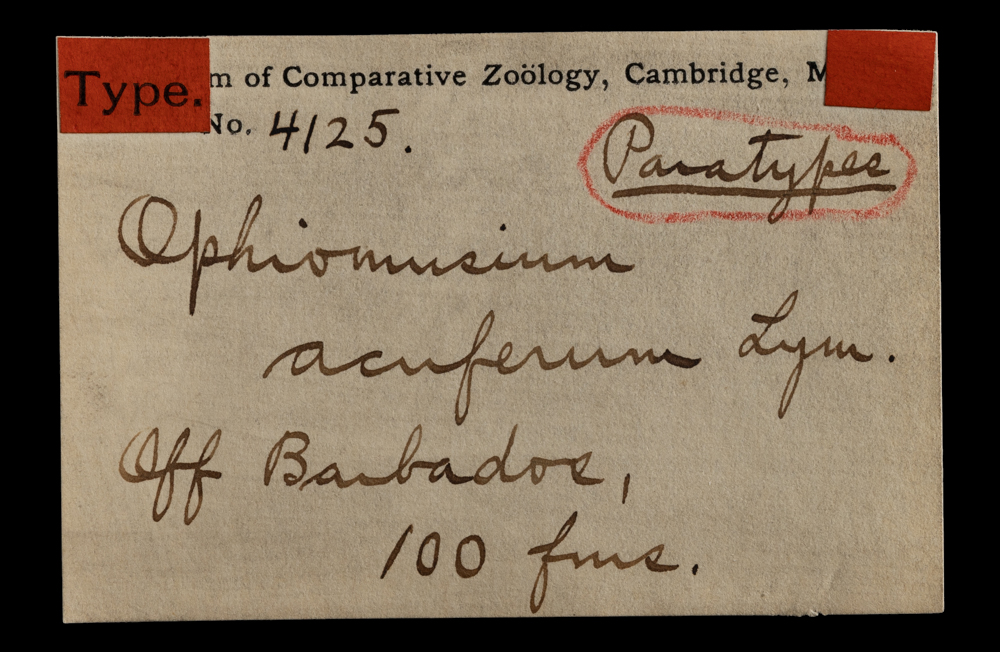 Type. m of Comparative Zoölogy, Cambridge, M
No. 4125.
Paratypes
Ophiomusium
acuferum Lym.
Off Barbados,
100 fms.